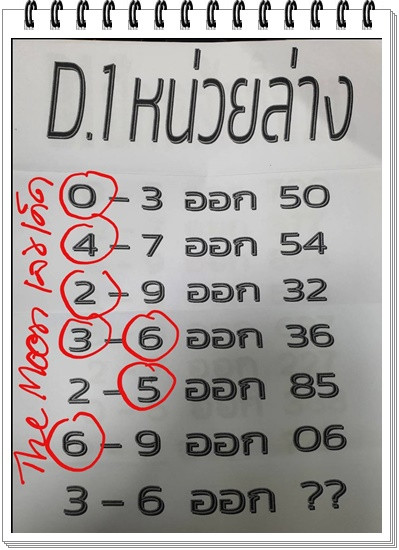 D.1 หน่วยล่าง
0 - 3 ออก 50
4 - 7 ออก 54
2 - 9 ออก 32
3 - 6 ออก 36
2 - 5 ออก 85
6 - 9 ออก 06
3 - 6 ออก ??
The Moon เลขเด็ด